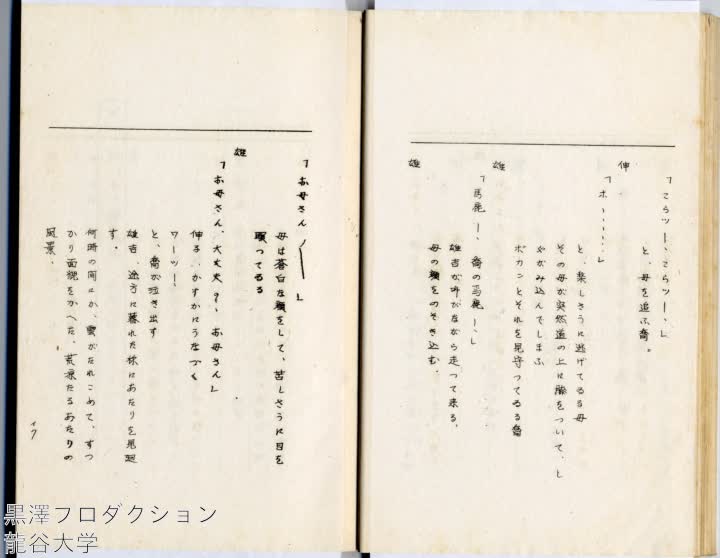 「こらツー、こらツー、」
と、母を追ふ喬。
伸
「ホヽヽヽヽ」
と、楽しさうに逃げてゐる母
その母が突然道の上に膝をついて、し
やがみ込んでしまふ
ポカンとそれを見守つてゐる喬
雄
「馬鹿ー、喬の馬鹿ー、」
雄吉が呼びながら走つて来る、
母の顔をのぞき込む、
「お母さん/\」
母は蒼白な顔をして、苦しさうに目を
瞑つてゐる
雄
「お母さん、大丈夫?、お母さん」
伸子、かすかにうなづく
ワーツー、
と、喬が泣き出す
雄吉、途方に暮れた様にあたりを見廻
す。
何時の間にか、雲がたれこめて、すつ
かり面貌をかへた、荒涼たるあたりの
風景、
黒澤プロダクション
龍谷大学